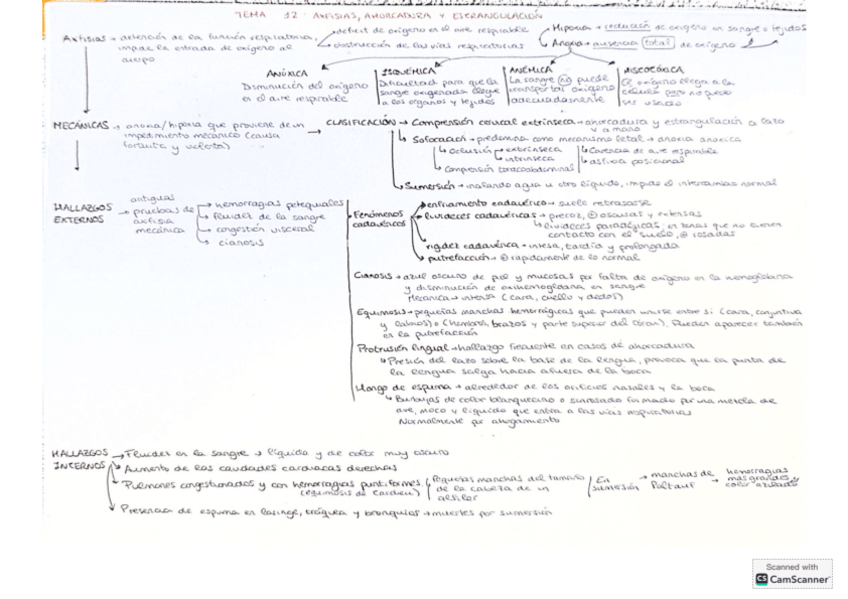 TEMA 12: AXFISIAS, AHORCADURA Y ESTRANGULACIÓN
Axfisias → detención de la función respiratoria, impide la entrada de oxígeno al cuerpo
déficit de oxígeno en el aire respirable
obstrucción de las vías respiratorias
Hipoxia → reducción de oxígeno en sangre o tejidos
Anoxia → ausencia total de oxígeno
ANÓXICA
Disminución del oxígeno en el aire respirable
ISQUÉMICA
Dificultad para que la sangre oxigenada llegue a los órganos y tejidos
ANÉMICA
La sangre no puede transportar oxígeno adecuadamente
El oxígeno llega a la célula pero no puede ser usado
MECÁNICAS → anoxia/hipoxia que proviene de un impedimento mecánico (causa fortuita y violenta)
CLASIFICACIÓN → Comprensión cervical extrínseca → ahorcadura y estrangulación a lazo y a mano
Sofocación → predomina como mecanismo letal → anoxia anóxica
Oclusión → extrínseca
intrínseca
Comprensión toracoabdominal
Carencia de aire respirable
asfixia posicional
Sumersión → inhalando agua u otro líquido, impide el intercambio normal
HALLAZGOS EXTERNOS
antiguas pruebas de axfisia mecánica
hemorragias petequiales
fluidez de la sangre
congestión visceral
cianosis
Fenómenos cadavéricos
enfriamiento cadavérico → suele retrasarse
livideces cadavéricas → precoz, ⊕ oscuras y extensas
livideces paradójicas: en zonas que no tienen contacto con el suelo, ⊕ rosadas
rigidez cadavérica → intensa, tardía y prolongada
putrefacción → ⊕ rápidamente de lo normal
Cianosis → azul oscuro de piel y mucosas por falta de oxígeno en la hemoglobina y disminución de oxihemoglobina en sangre
Mecánica → intensa (cara, cuello y dedos)
Equimosis → pequeñas manchas hemorrágicas que pueden unirse entre sí (cara, conjuntiva y labios) o (hombros, brazos y parte superior del tórax). Pueden aparecer también en la putrefacción
Protrusión lingual → hallazgo frecuente en casos de ahorcadura
Presión del lazo sobre la base de la lengua, provoca que la punta de la lengua salga hacia afuera de la boca
Hongo de espuma → alrededor de los orificios nasales y la boca
Burbujas de color blanquecino o sonrosado formado por una mezcla de aire, moco y líquido que entra a las vías respiratorias
Normalmente por ahogamiento
HALLAZGOS INTERNOS
Fluidez en la sangre → líquida y de color muy oscuro
Aumento de las cavidades cardiacas derechas
Pulmones congestionados y con hemorragias puntiformes (equimosis de Tardieu)
Pequeñas manchas del tamaño de la cabeza de un alfiler
En sumersión → manchas de Paltauf → hemorragias más grandes y color azulado
Presencia de espuma en laringe, tráquea y bronquios → muertes por sumersión
Scanned with
CS CamScanner